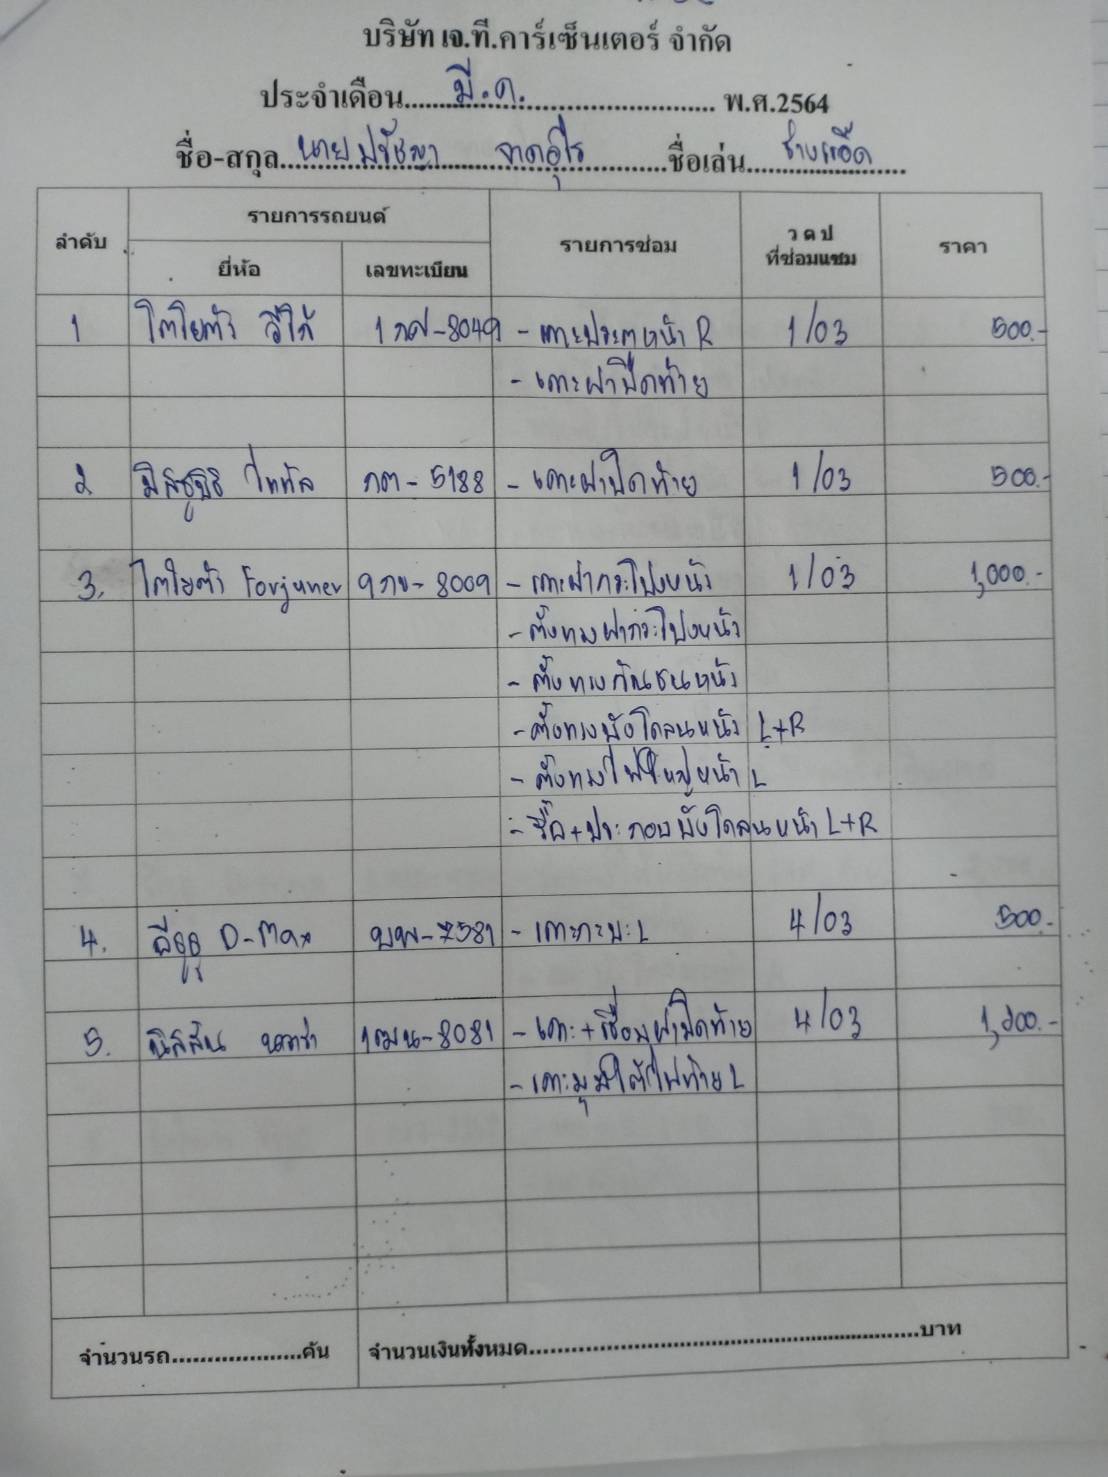 บริษัท เจ.ที.คาร์เซ็นเตอร์ จำกัด
ประจำเดือน....มี.ค.....พ.ศ.2564
ชื่อ-สกุล....นาย ปรัชญา....ชื่อเล่น....ช่างแอ๊ด....
ลำดับ รายการรถยนต์ รายการซ่อม ว ด ป ที่ซ่อมแซม ราคา
ยี่ห้อ เลขทะเบียน
1 โตโยต้า วีโก้ 1 กศ-8049 - เคาะประตูหน้า R 1/03 500.-
- เคาะฝาปิดท้าย
2 มิตซูบิชิ ไททัล กต-5188 - เคาะฝาปิดท้าย 1/03 500.-
3. โตโยต้า Forjuner 9กข-8009 - เคาะฝากระโปงหน้า 1/03 1,000.-
- ตั้งทางฝากระโปงหน้า
- ตั้งทางกันชนหน้า
- ตั้งทางบังโคลนหน้า L+R
- ตั้งทางไฟใหญ่หน้า L
- รื้อ+ประกอบบังโคลนหน้า L+R
4. อีซูซุ D-Max บพ-7581 - เคาะกะบะ L 4/03 500.-
5. นิสสัน นาวาร่า 1ฒน-8081 - เคาะ+เชื่อมฝาปิดท้าย 4/03
- เคาะมุมใต้ไฟท้าย L
จำนวนรถ....................คัน จำนวนเงินทั้งหมด....................บาท